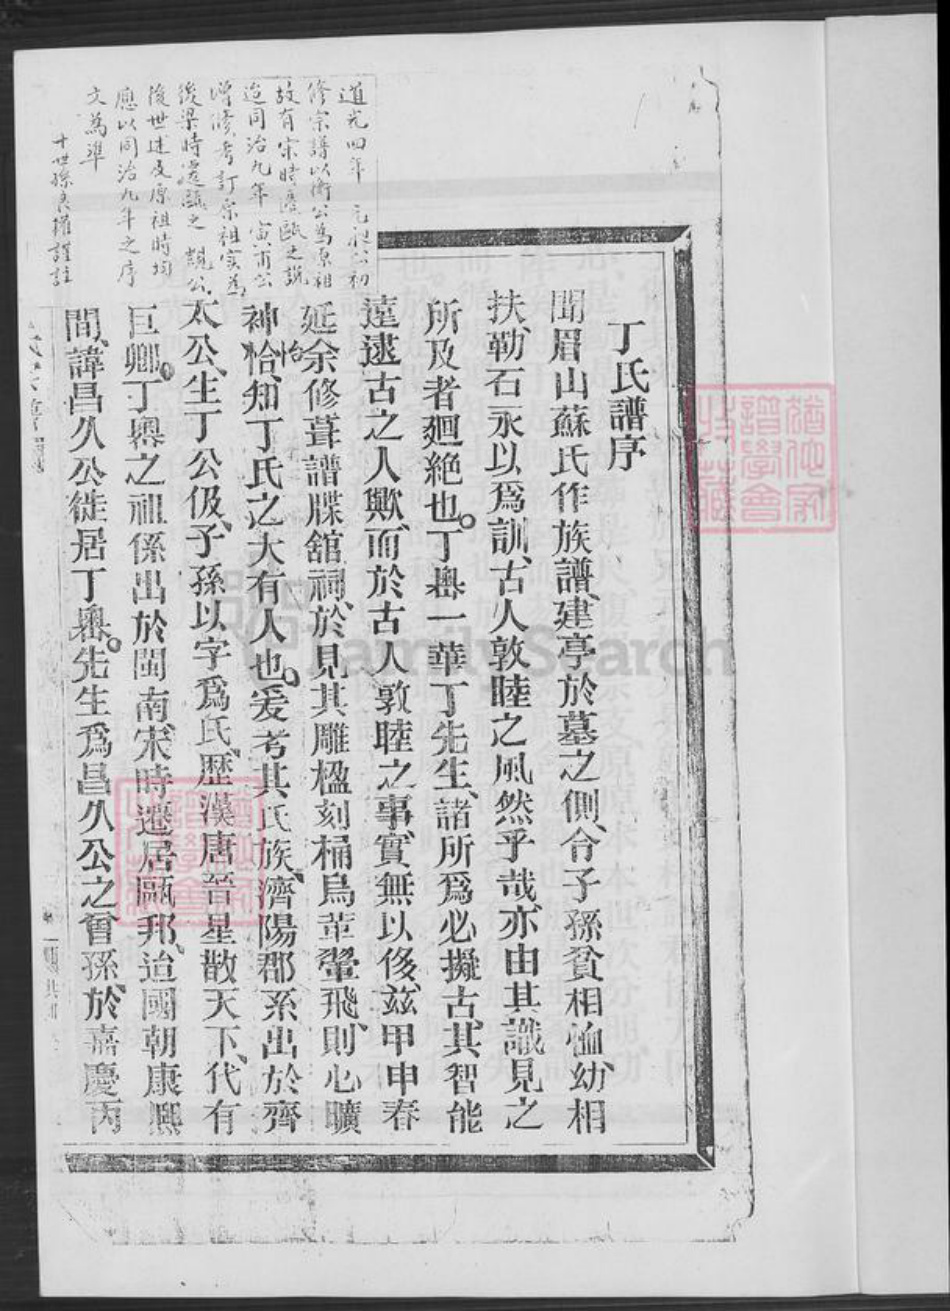 丁氏譜序
聞眉山蘇氏作族譜、建亭於墓之側、令子孫貧相恤、幼相
扶、勒石永以爲訓、古人敦睦之風然乎哉、亦由其識見之
所及者廻絶也。丁嶴一華丁先生、諸所爲必擬古、其智能
遠逮古之人歟、而於古人敦睦之事、實無以後、玆甲申春
延余修葺譜牒、舘祠、於見其雕楹刻桷、鳥革翬飛、則心曠
神恰、怡知丁氏之大有人也。爰考其氏族、濟陽郡系出於齊
太公、生丁公伋、子孫以字爲氏、歷漢唐晉、星散天下、代有
巨卿。丁嶴之祖係出於閩南、宋時遷居甌邦、迨國朝康熙
間、諱昌久公徙居丁嶴。先生爲昌久公之曾孫、於嘉慶丙
道光四年 元 公初
修宗譜以衡公爲原祖
故有宋時遷甌之說
迨同治九年 寅 公
增修考訂原祖實爲
後梁時遷甌之 公
後世述及原祖時均
應以同治九年之序
文爲準
十世孫良權謹註
譜學會
收藏
FamilySearch